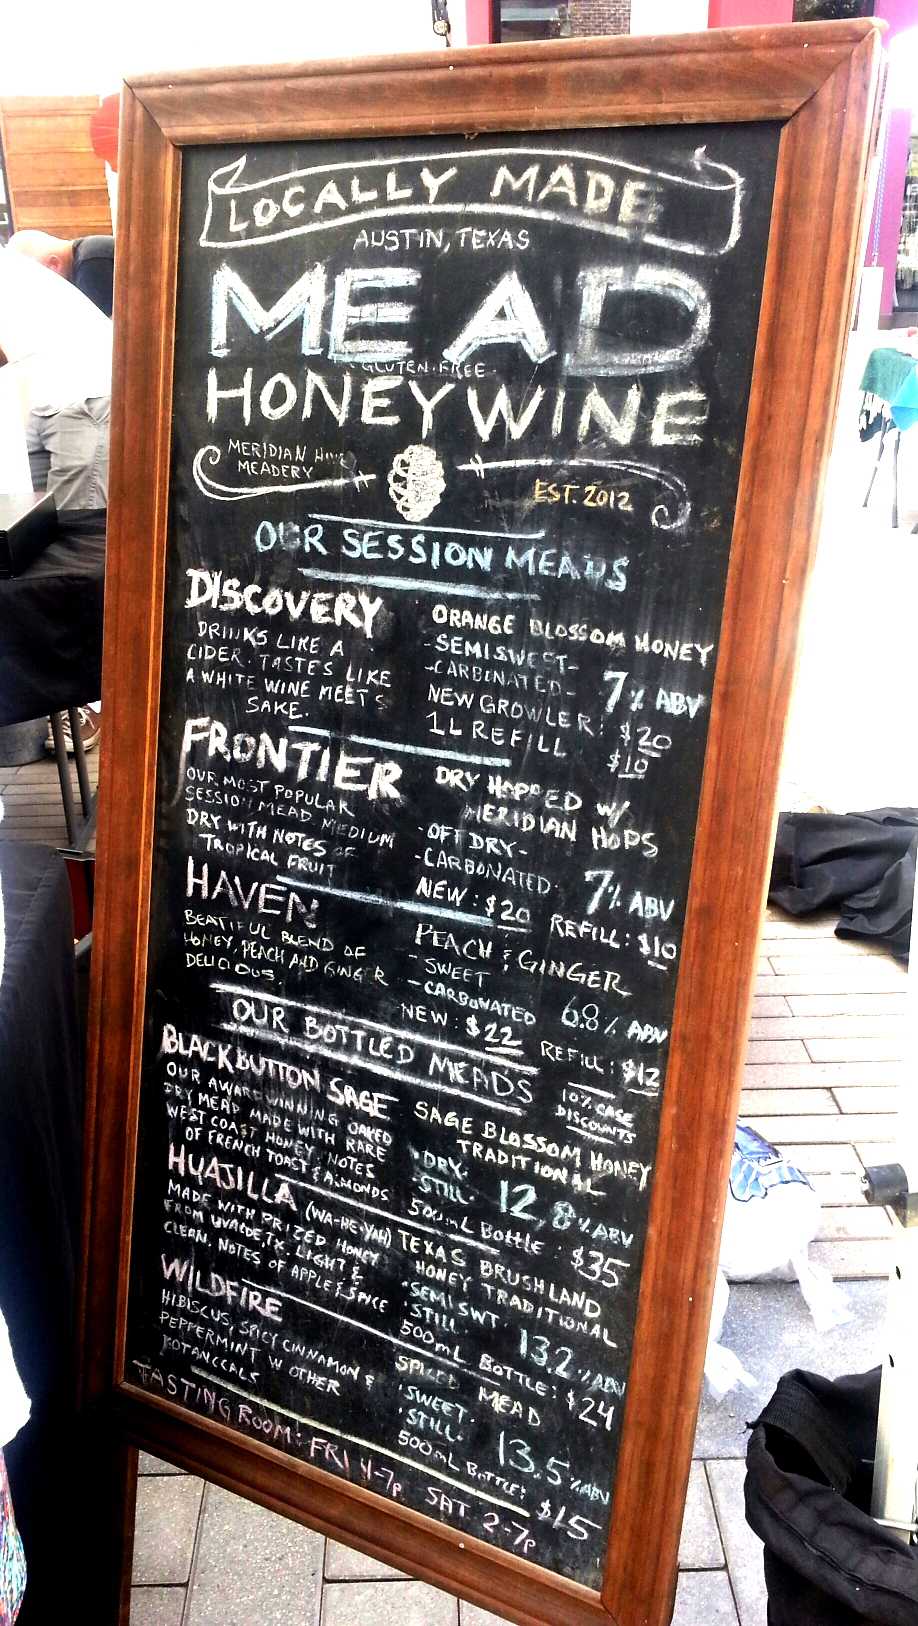 LOCALLY MADE
AUSTIN, TEXAS
MEAD
GLUTEN-FREE
HONEY WINE
MERIDIAN HIVE
MEADERY
EST. 2012
OUR SESSION MEADS
DISCOVERY
DRINKS LIKE A
CIDER. TASTES LIKE
A WHITE WINE MEETS
SAKE.
ORANGE BLOSSOM HONEY
-SEMISWEET-
-CARBONATED-
7% ABV
NEW GROWLER: $20
1L REFILL $10
FRONTIER
OUR MOST POPULAR
SESSION MEAD MEDIUM
DRY WITH NOTES OF
TROPICAL FRUIT
DRY HOPPED W/
MERIDIAN HOPS
-OFF DRY-
-CARBONATED-
7% ABV
NEW: $20 REFILL: $10
HAVEN
BEATIFUL BLEND OF
HONEY, PEACH AND GINGER
DELICIOUS.
PEACH & GINGER
- SWEET
- CARBONATED
6.8% ABV
NEW: $22 REFILL: $12
OUR BOTTLED MEADS
10% CASE
DISCOUNTS
BLACKBUTTON SAGE
OUR AWARD WINNING OAKED
DRY MEAD MADE WITH RARE
WEST COAST HONEY. NOTES
OF FRENCH TOAST & ALMONDS
SAGE BLOSSOM HONEY
TRADITIONAL
·DRY·
·STILL·
12.8% ABV
500mL BOTTLE: $35
HUAJILLA (WA-HE-YAH)
MADE WITH PRIZED HONEY
FROM UVALDE, TX. LIGHT &
CLEAN. NOTES OF APPLE & SPICE
TEXAS BRUSHLAND
HONEY TRADITIONAL
·SEMI SWT·
·STILL·
13.2% ABV
500mL BOTTLE: $24
WILDFIRE
HIBISCUS, SPICY CINNAMON &
PEPPERMINT W OTHER
BOTANCCALS
SPICED MEAD
·SWEET·
·STILL·
13.5% ABV
500mL BOTTLE: $15
TASTING ROOM: FRI 4-7P. SAT 2-7P